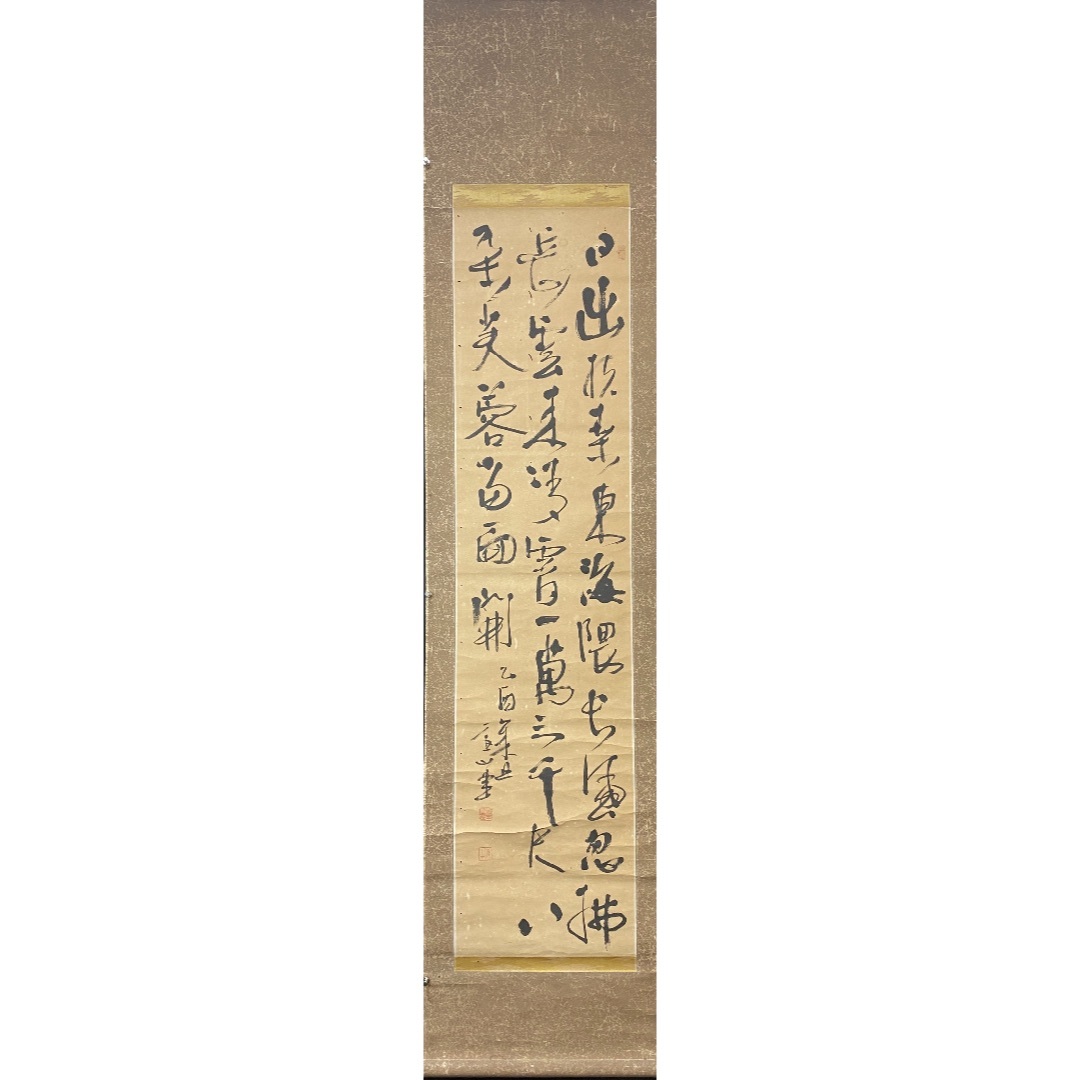 日出扶桑東海隈長忽拂
岳雲来凌霄一萬三千尺八
朶芙蓉當面開
乙酉